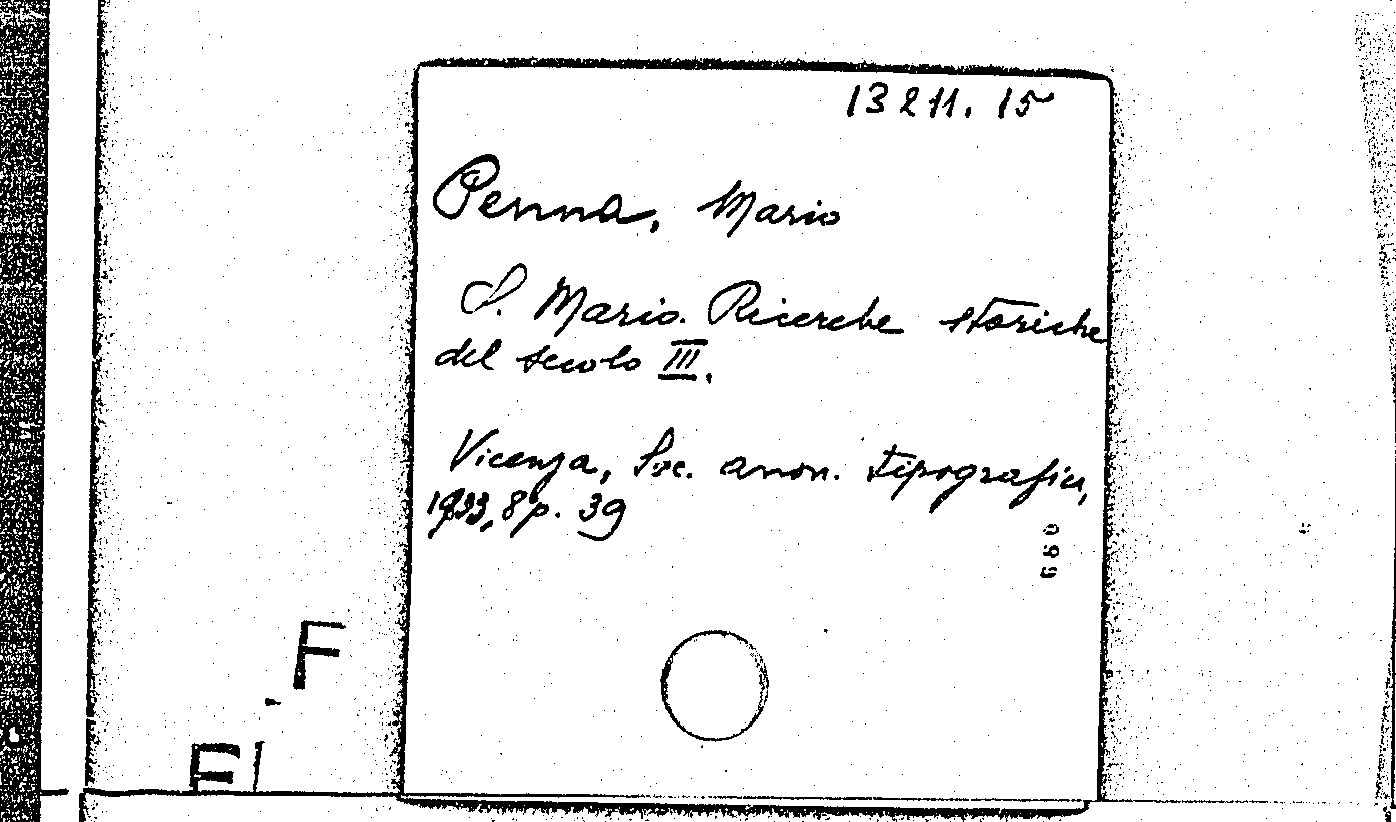 13211.15
Penna, Mario
S. Mario. Ricerche storiche
del secolo III.
Vicenza, Soc. anon. tipografica,
1933, 8 p. 39
089
F
F